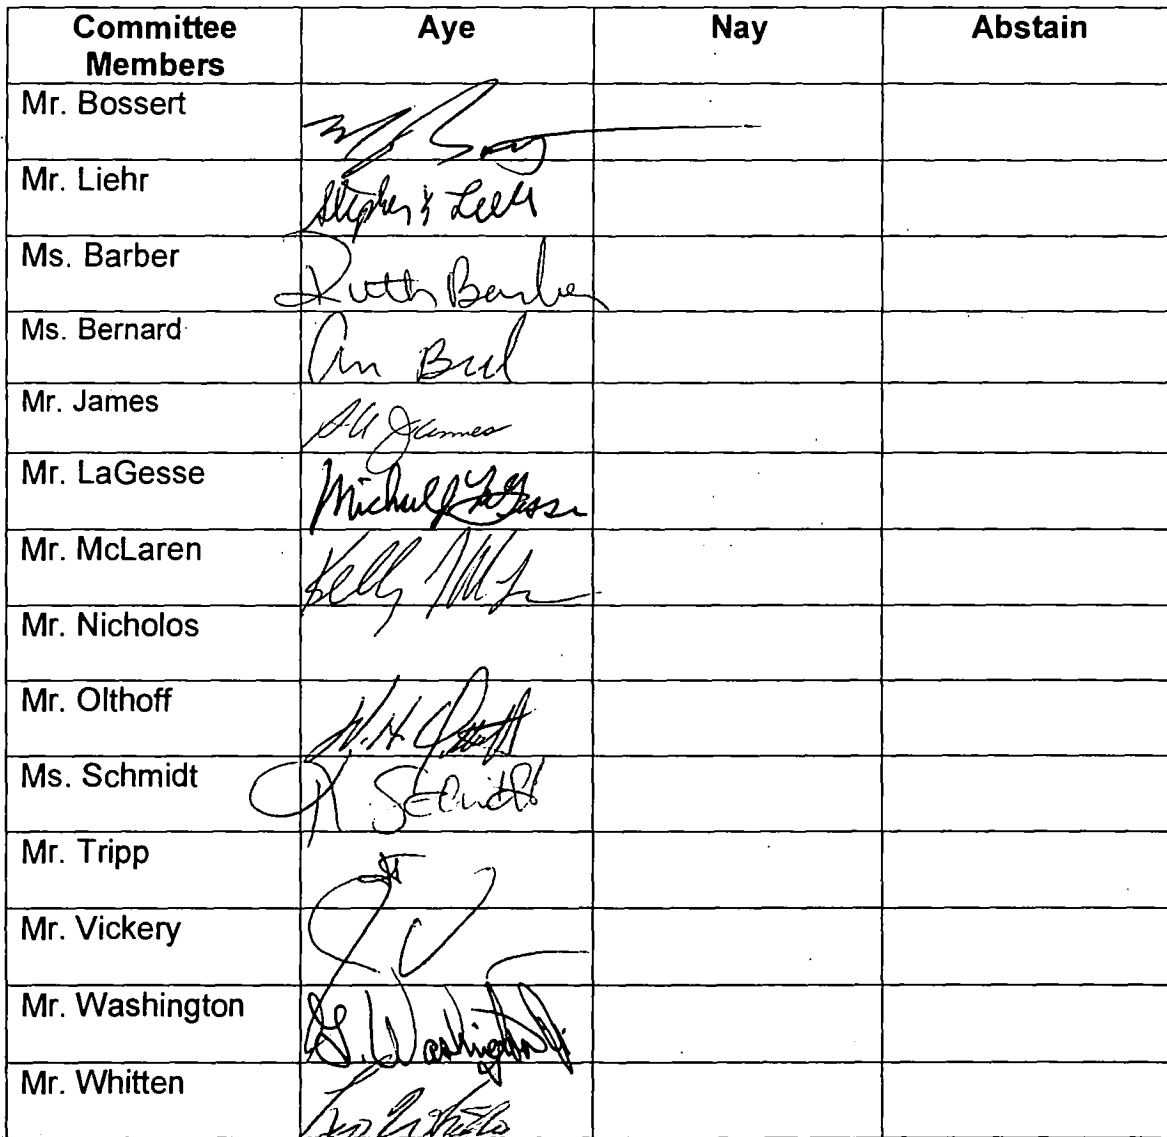 Committee Members Aye Nay Abstain
Mr. Bossert
Mr. Liehr
Ms. Barber Ruth Barber
Ms. Bernard
Mr. James James
Mr. LaGesse Michael J LaGesse
Mr. McLaren Kelly
Mr. Nicholos
Mr. Olthoff W.H.
Ms. Schmidt K Schmidt
Mr. Tripp
Mr. Vickery
Mr. Washington G. Washington Jr.
Mr. Whitten